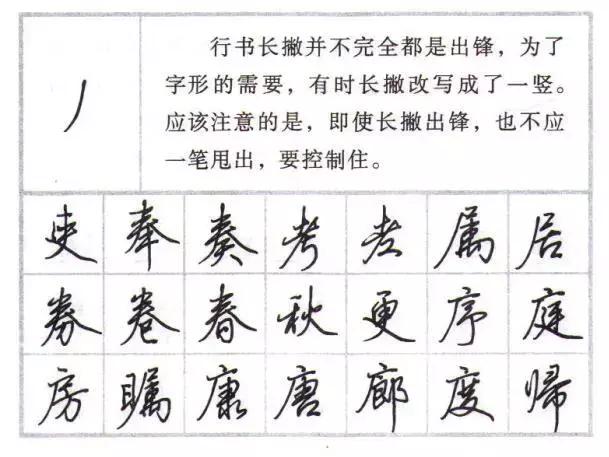 行书长撇并不完全都是出锋，为了
字形的需要，有时长撇改写成了一竖。
应该注意的是，即使长撇出锋，也不应
一笔甩出，要控制住。
吏 奉 奏 考 老 属 居
券 卷 春 秋 更 序 庭
房 瞩 康 唐 廊 度 帰